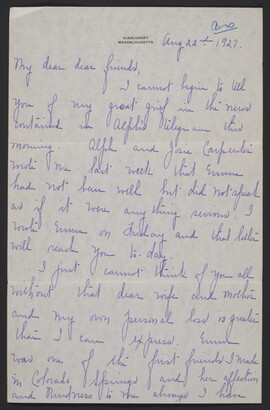 SIASCONSET
MASSACHUSETTS
Aug 22nd 1927.
My dear dear friends,
I cannot begin to tell
you of my great grief in the news
contained in Alph's telegram this
morning. Alph and Josie Carpenter
wrote me last week that Emma
had not been well but did not speak
as if it were any thing serious. I
wrote Emma on Friday and that letter
will reach you to-day.
I just cannot think of you all
without that dear wife and mother
and my own personal loss is greater
than I can express. Emma
was one of the first friends I made
in Colorado Springs and her affection
and kindness to me always I have